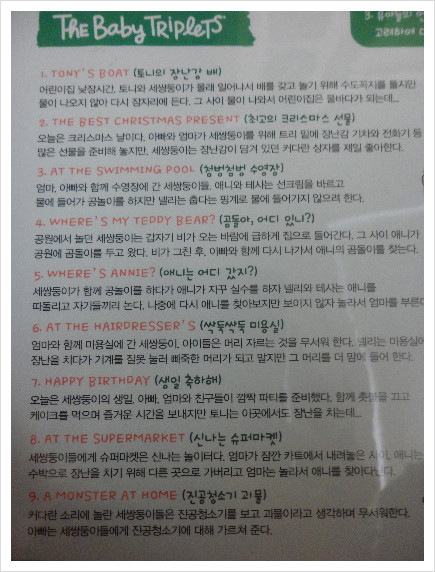 The Baby Triplets
3. 유아들의
고려하여
1. TONY'S BOAT (토니의 장난감 배)
어린이집 낮잠시간, 토니와 세쌍둥이가 몰래 일어나서 배를 갖고 놀기 위해 수도꼭지를 틀지만
물이 나오지 않아 다시 잠자리에 든다. 그 사이 물이 나와서 어린이집은 물바다가 되는데...
2. THE BEST CHRISTMAS PRESENT (최고의 크리스마스 선물)
오늘은 크리스마스 날이다. 아빠와 엄마가 세쌍둥이를 위해 트리 밑에 장난감 기차와 전화기 등
많은 선물을 준비해 놓지만, 세쌍둥이는 장난감이 담겨 있던 커다란 상자를 제일 좋아한다.
3. AT THE SWIMMING POOL (첨벙첨벙 수영장)
엄마, 아빠와 함께 수영장에 간 세쌍둥이들. 애니와 테사는 선크림을 바르고
물에 들어가 공놀이를 하지만 넬리는 춥다는 핑계로 물에 들어가지 않으려 한다.
4. WHERE'S MY TEDDY BEAR? (곰돌아, 어디 있니?)
공원에서 놀던 세쌍둥이는 갑자기 비가 오는 바람에 급하게 집으로 들어간다. 그 사이 애니가
공원에 곰돌이를 두고 왔다. 비가 그친 후, 아빠와 함께 다시 나가서 애니의 곰돌이를 찾는다.
5. WHERE'S ANNIE? (애니는 어디 갔지?)
세쌍둥이가 함께 공놀이를 하다가 애니가 자꾸 실수를 하자 넬리와 테사는 애니를
따돌리고 자기들끼리 논다. 나중에 다시 애니를 찾아보지만 보이지 않자 놀라서 엄마를 부른다
6. AT THE HAIRDRESSER'S (싹둑싹둑 미용실)
엄마와 함께 미용실에 간 세쌍둥이. 아이들은 머리 자르는 것을 무서워 한다. 넬리는 미용실에
장난을 치다가 기계를 잘못 눌러 삐죽한 머리가 되고 말지만 그 머리를 더 맘에 들어 한다.
7. HAPPY BIRTHDAY (생일 축하해)
오늘은 세쌍둥이의 생일. 아빠, 엄마와 친구들이 깜짝 파티를 준비했다. 함께 촛불을 끄고
케이크를 먹으며 즐거운 시간을 보내지만 토니는 이곳에서도 장난을 치는데...
8. AT THE SUPERMARKET (신나는 슈퍼마켓)
세쌍둥이들에게 슈퍼마켓은 신나는 놀이터다. 엄마가 잠깐 카트에서 내려놓은 사이, 애니는
수박으로 장난을 치기 위해 다른 곳으로 가버리고 엄마는 놀라서 애니를 찾아다닌다.
9. A MONSTER AT HOME (진공청소기 괴물)
커다란 소리에 놀란 세쌍둥이들은 진공청소기를 보고 괴물이라고 생각하며 무서워한다.
아빠는 세쌍둥이들에게 진공청소기에 대해 가르쳐 준다.